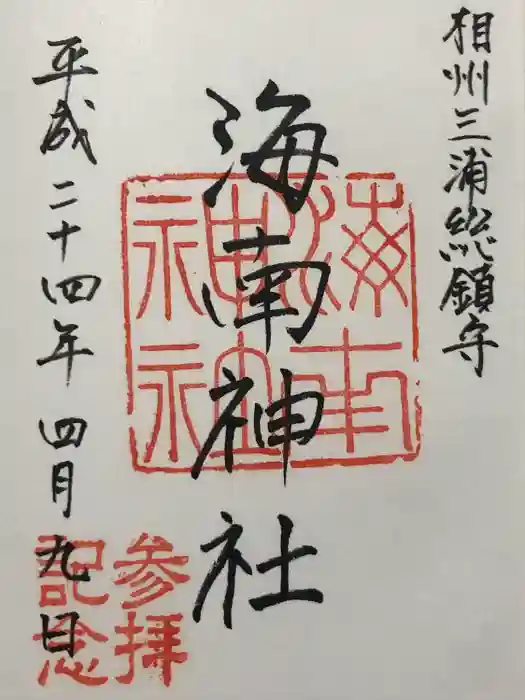 相州三浦総鎮守
海南神社
平成二十四年四月九日
海南
神社
参拝
記念